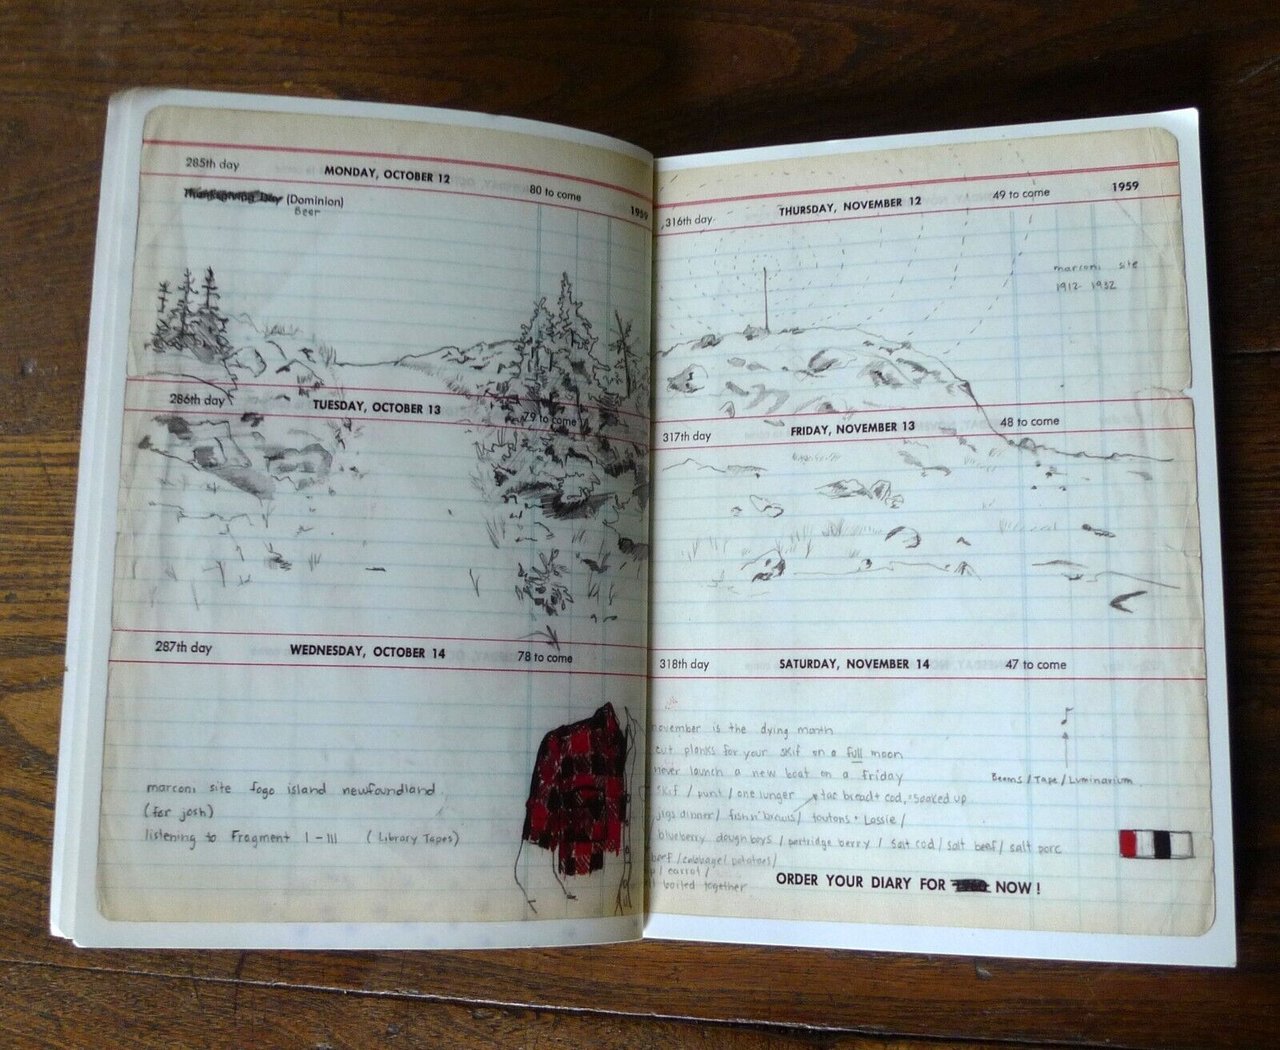 285th day MONDAY, OCTOBER 12 80 to come 1959
(Dominion)
Beer
286th day TUESDAY, OCTOBER 13 79 to come
287th day WEDNESDAY, OCTOBER 14 78 to come
marconi site fogo island newfoundland
(for josh)
listening to Fragment I-III (Library Tapes)
316th day THURSDAY, NOVEMBER 12 49 to come 1959
marconi site
1912-1932
317th day FRIDAY, NOVEMBER 13 48 to come
318th day SATURDAY, NOVEMBER 14 47 to come
november is the dying month
cut planks for your skif on a full moon
never launch a new boat on a friday
Beams/Tape/Luminarium
skif / punt / one lunger bread + cod, soaked up
jigs dinner/ fish n' brewis/ toutons + Lassie/
blueberry doughboys / partridge berry / salt cod / salt beef / salt porc
beef /cabbage/ potatoes/
/ carrot /
boiled together
ORDER YOUR DIARY FOR NOW!